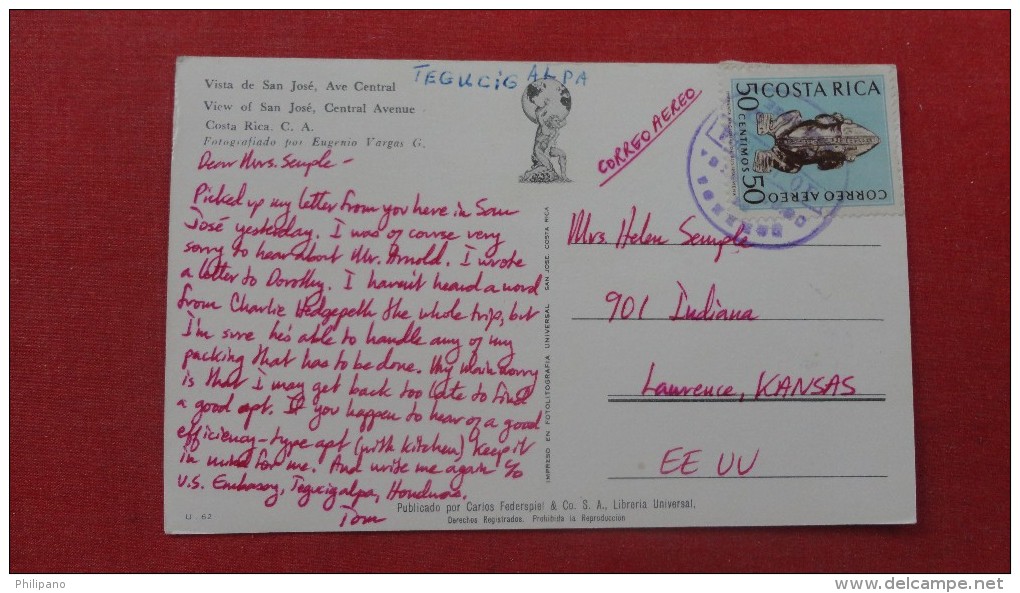 TEGUCIGALPA
Vista de San José, Ave Central
View of San José, Central Avenue
Costa Rica. C. A.
Fotografiado por Eugenio Vargas G.
Dear Mrs. Semple -
Picked up my letter from you here in San
José yesterday. I was of course very
sorry to hear about Mr. Arnold. I wrote
a letter to Dorothy. I haven't heard a word
from Charlie Hedgepeth the whole trip, but
I'm sure he's able to handle any of my
packing that has to be done. My main worry
is that I may get back too late to find
a good apt. If you happen to hear of a good
efficiency-type apt (with kitchen) keep it
in mind for me. And write me again c/o
U.S. Embassy, Tegucigalpa, Honduras.
Tom
U 62
IMPRESO EN FOTOLITOGRAFIA UNIVERSAL SAN JOSE, COSTA RICA
Publicado por Carlos Federspiel & Co. S. A., Librería Universal.
Derechos Registrados. Prohibida la Reproducción
CORREO AEREO
COSTA RICA
50 CENTIMOS 50
CORREO AEREO
Mrs. Helen Semple
901 Indiana
Lawrence, KANSAS
EE UU
Philipano
http://www.delcampe.net